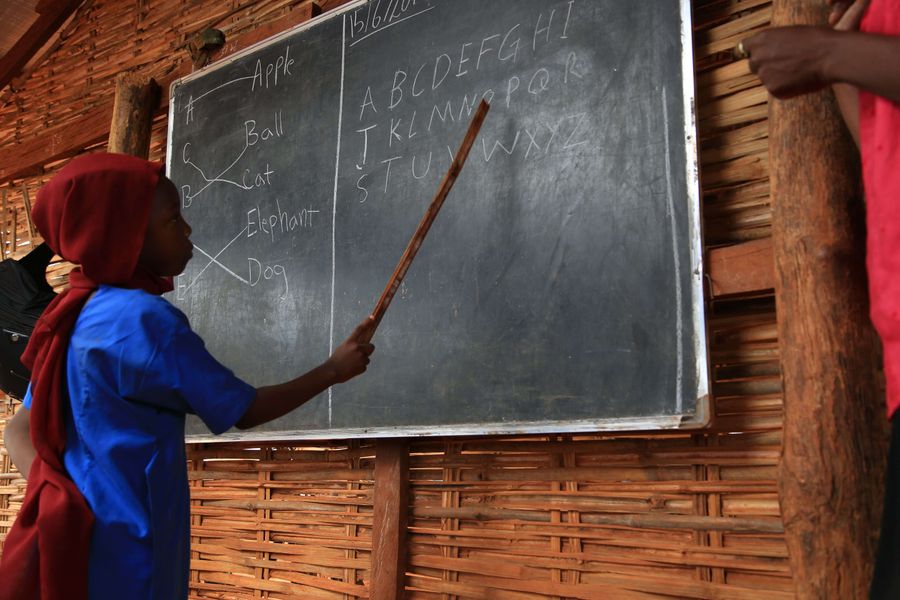 A Apple
C Ball
B Cat
Elephant
E Dog
15/6/20
A B C D E F G H I
J K L M N O P Q R
S T U V W X Y Z